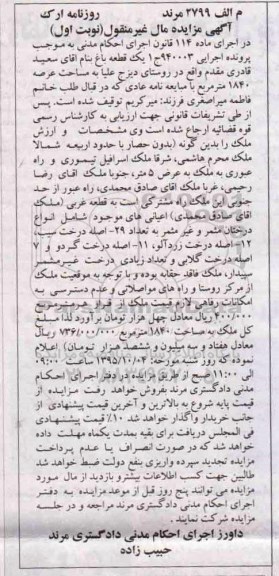 م الف ۲۷۹۹ مرند روزنامه ارک
آگهی مزایده مال غیرمنقول(نوبت اول)
در اجرای ماده ۱۱۴ قانون اجرای احکام مدنی به موجب
پرونده اجرایی ۹۴۰۰۰۳ج۱ یک قطعه باغ بنام آقای سعید
قادری مقدم واقع در روستای دیزج علیا به مساحت عرصه
۱۸۴۰ مترمربع با مبایعه نامه عادی که در قبال طلب خانم
فاطمه میراصغری فرزند: میرکریم توقیف شده است. پس
از طی تشریفات قانونی جهت ارزیابی به کارشناس رسمی
قوه قضائیه ارجاع شده است وی مشخصات و ارزش
ملک را بدین گونه (بدون حصار با حدود اربعه شمالا
ملک محرم هاشمی، شرقا ملک اسرافیل تیموری و راه
عبوری به ملک به عرض ۵ متر، جنوبا ملک آقای رضا
رحیمی، غربا ملک آقای صادق محمدی، راه عبور از حد
جنوبی این ملک راه مشترکی است به قطعه غربی (ملک
آقای صادق محمدی) اعیانی های موجود شامل انواع
درختان مثمر و غیر مثمر به تعداد ۲۹- اصله درخت سیب
۱۲- اصله درخت زردآلو، ۱۱- اصله درخت گردو و ۷
اصله درخت گلابی و تعداد زیادی درخت غیرمثمر
سپیدار، ملک فاقد حقابه بوده و با توجه به موقعیت ملک
از مرکز روستا و راه های مواصلاتی و عدم دسترسی به
امکانات رفاهی لازم قیمت ملک از قرار هر مترمربع
۴۰۰/۰۰۰ ریال معادل چهل هزار تومان برآورد لذا مبلغ
کل ملک به مساحت ۱۸۴۰ مترمربع ۷۳۶/۰۰۰/۰۰۰ ریال
معادل هفتاد و سه میلیون و ششصد هزار تومان) اعلام
نموده که روز شنبه مورخه: ۱۳۹۵/۱۰/۰۴ از ساعت ۰۹:۰۰
الی ۱۱:۰۰ صبح از طریق مزایده در دفتر اجرای احکام
مدنی دادگستری مرند بفروش خواهد رفت مزایده از
قیمت پایه شروع به بالاترین و آخرین قیمت پیشنهادی از
جانب خریدار واگذار خواهد شد ۱۰٪ قیمت پیشنهادی
فی المجلس دریافت برای بقیه بمدت یکماه مهلت داده
خواهد شد که در صورت انصراف یا عدم پرداخت
مزایده تجدید سپرده واریزی بنفع دولت ضبط خواهد شد
طالبین جهت کسب اطلاعات بیشتر و بازدید از مال مورد
مزایده می توانند پنج روز قبل از موعد مزایده به دفتر
اجرای احکام مدنی دادگستری مرند مراجعه و در جلسه
مزایده شرکت نمایند.
داورز اجرای احکام مدنی دادگستری مرند
حبیب زاده